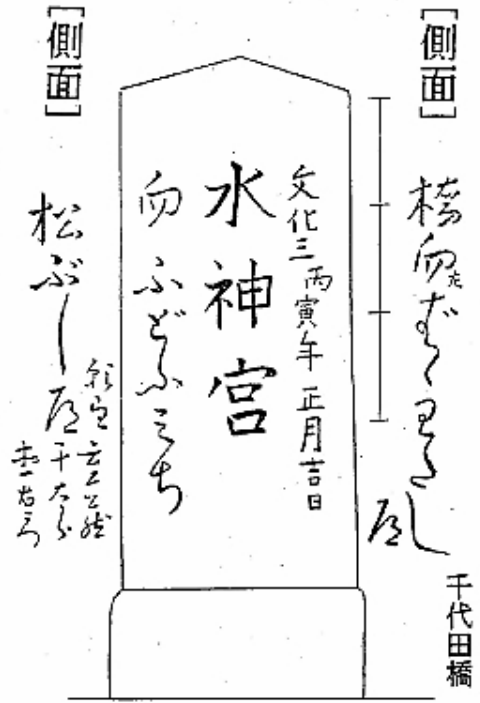 ［側面］
橋向
わたし
道
千代田橋
文化三丙寅年 正月吉日
水神宮
向ふどふみち
［側面］
松ぶし道
願主